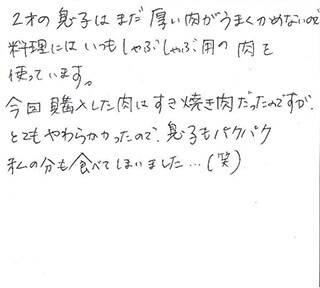 2才の息子はまだ厚い肉がうまくかめないので
料理にはいつもしゃぶしゃぶ用の肉を
使っています。
今回購入した肉はすき焼き肉だったのですが、
とてもやわらかかったので、息子もパクパク
私の分も食べてしまいました…(笑)